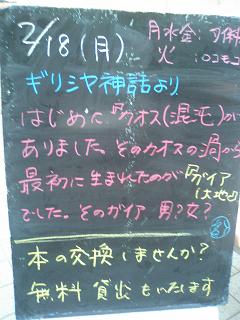 2/18(月)
月水金:
火:ロコモコ
ギリシヤ神話より
はじめに『カオス(混毛)が
ありました。そのカオスの渦から
最初に生まれたのが『ガイア
(大地)』
でした。そのガイア 男?女?
本の交換しませんか?
無料 貸出もいたします